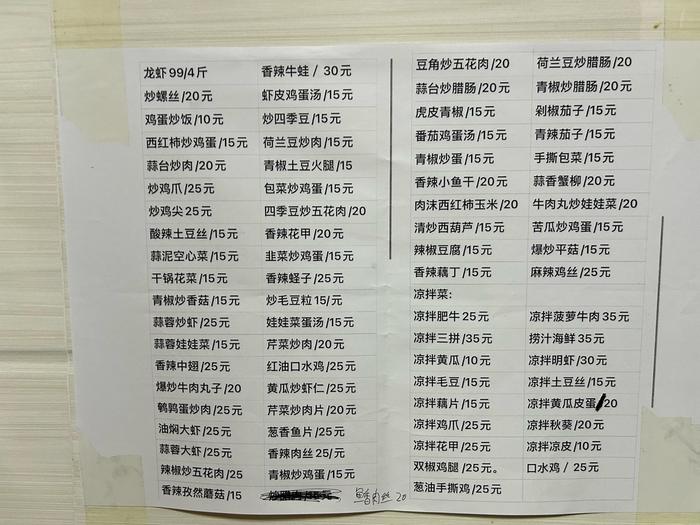 龙虾99/4斤
香辣牛蛙/30元
炒螺丝/20元
虾皮鸡蛋汤/15元
鸡蛋炒饭/10元
炒四季豆/15元
西红柿炒鸡蛋/15元
荷兰豆炒肉/15元
蒜台炒肉/20元
青椒土豆火腿/15
炒鸡爪/25元
包菜炒鸡蛋/15元
炒鸡尖25元
四季豆炒五花肉/20
酸辣土豆丝/15元
香辣花甲/20元
蒜泥空心菜/15元
韭菜炒鸡蛋/15元
干锅花菜/15元
香辣蛏子/25元
青椒炒香菇/15元
炒毛豆粒15/元
蒜蓉炒虾/25元
娃娃菜蛋汤/15元
蒜蓉娃娃菜/15元
芹菜炒肉/20元
香辣中翅/25元
红油口水鸡/25元
爆炒牛肉丸子/20
黄瓜炒虾仁/25元
鹌鹑蛋炒肉/25元
芹菜炒肉片/20元
油焖大虾/25元
葱香鱼片/25元
蒜蓉大虾/25元
香辣肉丝25/元
辣椒炒五花肉/25
青椒炒鸡蛋/15元
香辣孜然蘑菇/15
肉丝20
豆角炒五花肉/20
荷兰豆炒腊肠/20
蒜台炒腊肠/20元
青椒炒腊肠/20元
虎皮青椒/15元
剁椒茄子/15元
番茄鸡蛋汤/15元
青辣茄子/15元
青椒炒蛋/15元
手撕包菜/15元
香辣小鱼干/20元
蒜香蟹柳/20元
肉沫西红柿玉米/20
牛肉丸炒娃娃菜/20
清炒西葫芦/15元
苦瓜炒鸡蛋/15元
辣椒豆腐/15元
爆炒平菇/15元
香辣藕丁/15元
麻辣鸡丝/25元
凉拌菜:
凉拌肥牛25元
凉拌菠萝牛肉35元
凉拌三拼/35元
捞汁海鲜35元
凉拌黄瓜/10元
凉拌明虾/30元
凉拌毛豆/15元
凉拌土豆丝/15元
凉拌藕片/15元
凉拌黄瓜皮蛋/20
凉拌鸡爪/25元
凉拌秋葵/20元
凉拌花甲/25元
凉拌凉皮/10元
双椒鸡腿/25元。
口水鸡/25元
葱油手撕鸡/25元